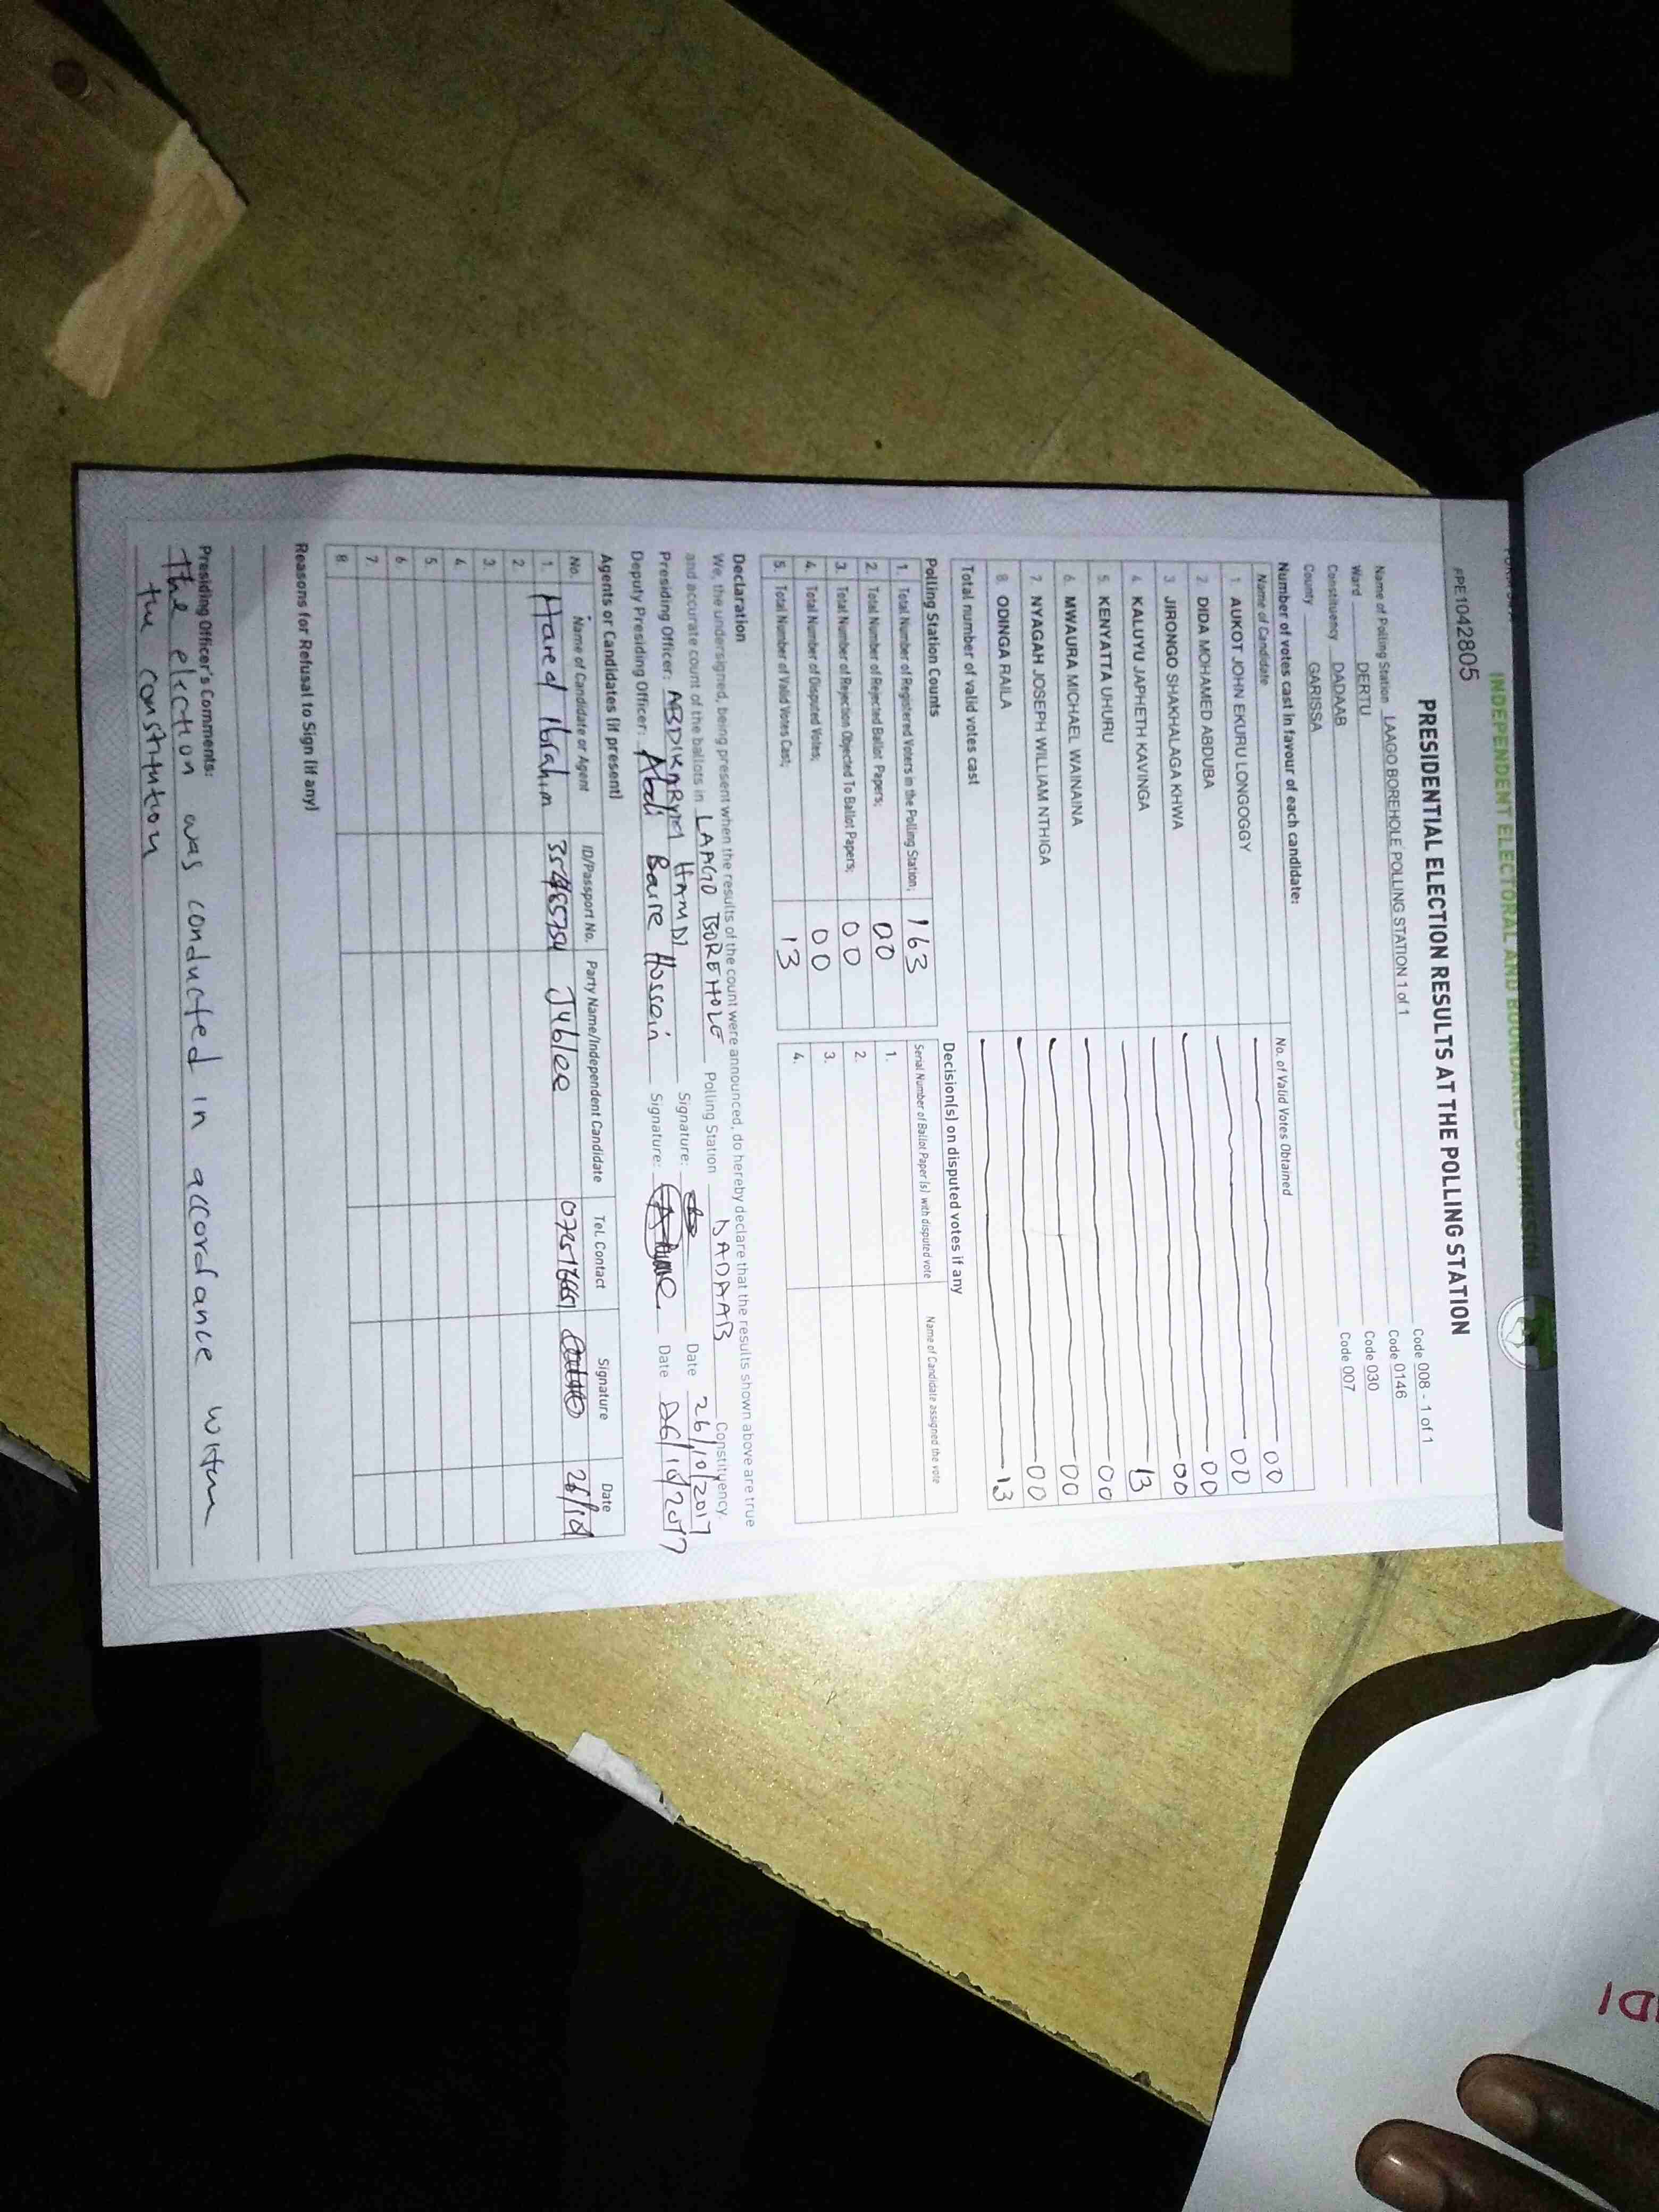 INDEPENDENT ELECTORAL AND BOUNDARIES COMMISSION
PPE1042805
PRESIDENTIAL ELECTION RESULTS AT THE POLLING STATION
Name of Polling Station LAAGO BOREHOLE POLLING STATION 1 of 1 Code 008 - 1 of 1
Ward DERTU Code 0146
Constituency DADAAB Code 030
County GARISSA Code 007
Number of votes cast in favour of each candidate:
Name of Candidate No. of Valid Votes Obtained
1. AUKOT JOHN EKURU LONGOGGY 00
2. DIDA MOHAMED ABDUBA 00
3. JIRONGO SHAKHALAGA KHWA 00
4. KALUYU JAPHETH KAVINGA 00
5. KENYATTA UHURU 13
6. MWAURA MICHAEL WAINAINA 00
7. NYAGAH JOSEPH WILLIAM NTHIGA 00
8. ODINGA RAILA 00
Total number of valid votes cast 13
Polling Station Counts
1. Total Number of Registered Voters in the Polling Station; 163
2. Total Number of Rejected Ballot Papers; 00
3. Total Number of Rejection Objected To Ballot Papers; 00
4. Total Number of Disputed Votes; 00
5. Total Number of Valid Votes Cast; 13
Decision(s) on disputed votes if any
Serial Number of Ballot Paper(s) with disputed vote Name of Candidate assigned the vote
1.
2.
3.
4.
Declaration
We, the undersigned, being present when the results of the count were announced, do hereby declare that the results shown above are true
and accurate count of the ballots in LAAGO BOREHOLE Polling Station DADAAB Constituency.
Presiding Officer: HAMDI Signature: Date 26/10/2017
Deputy Presiding Officer: Abdi Barre Hossein Signature: Date 26/10/2017
Agents or Candidates (if present)
No. Name of Candidate or Agent ID/Passport No. Party Name/Independent Candidate Tel. Contact Signature Date
1. Hared Ibrahim Jublee 26/10
2
3.
4
5.
6
7.
8
Reasons for Refusal to Sign (if any)
Presiding Officer's Comments:
The election was conducted in accordance within
the constitution